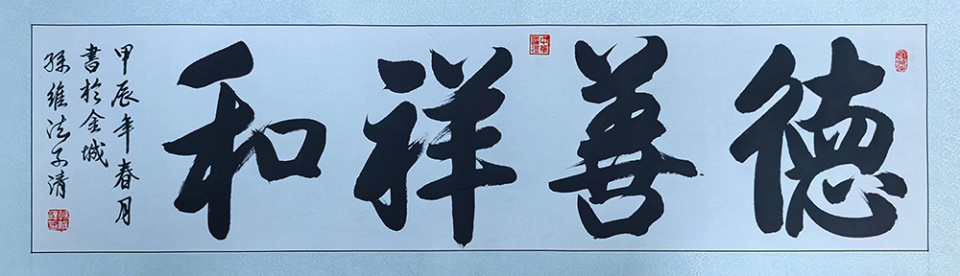 德善祥和
甲辰年春月
書於金城
孫維法子清